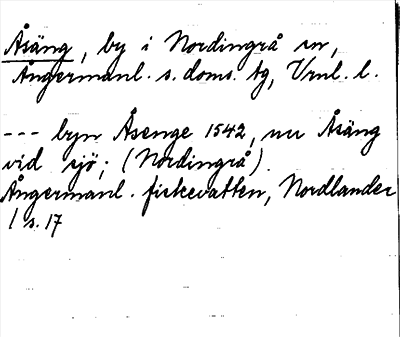 Åsäng, by i Nordingrå sn,
Ångermanl. s. doms. tg, Vrnl. l.
--- byn Åsenge 1542, nu Åsäng
vid sjö; (Nordingrå).
Ångermanl. fiskevatten, Nordlander
1 s. 17